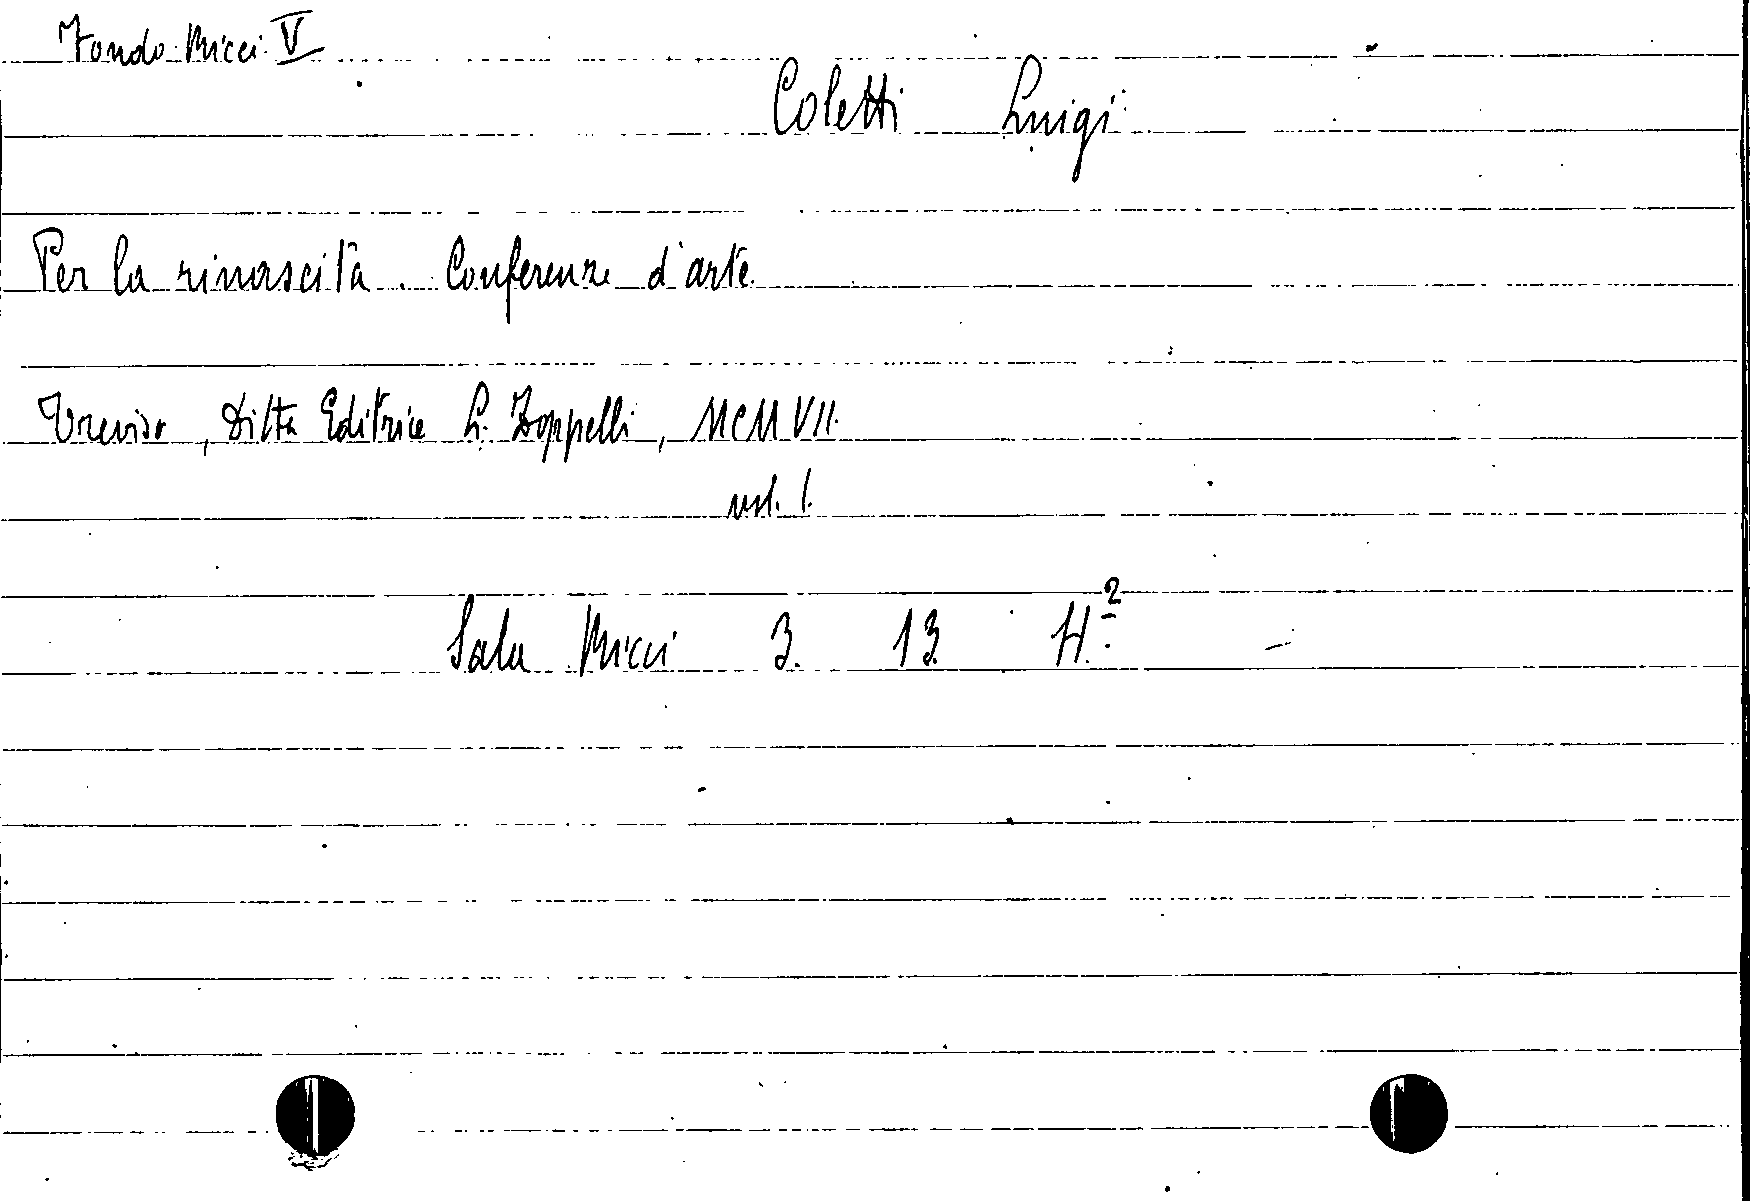 Fondo Ricci V
Coletti Luigi
Per la rinascita. Conferenze d'arte.
Treviso, Ditta Editrice L. Zoppelli, MCMVII.
vol. 1.
Sala Ricci 3. 13. H.²